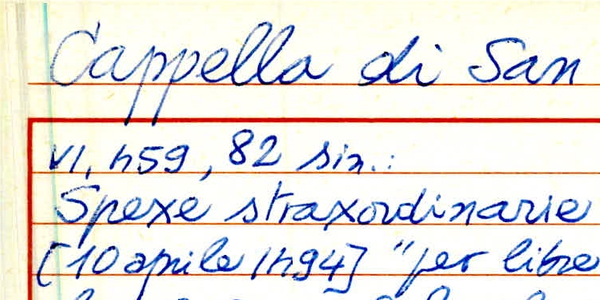 Cappella di San
VI, 459, 82 sin.:
Spexe straxordinarie
[10 aprile 1494] "per libre